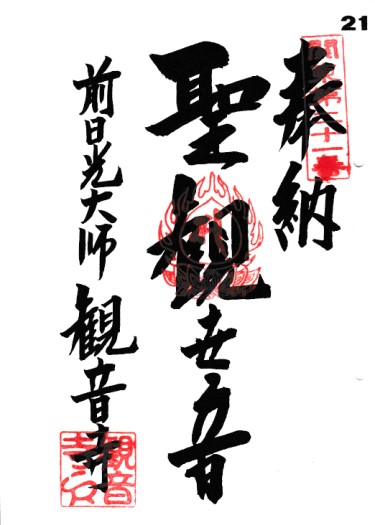 21
奉納
関東第二十一番
聖観世音
前日光大師
観音寺
観音寺印